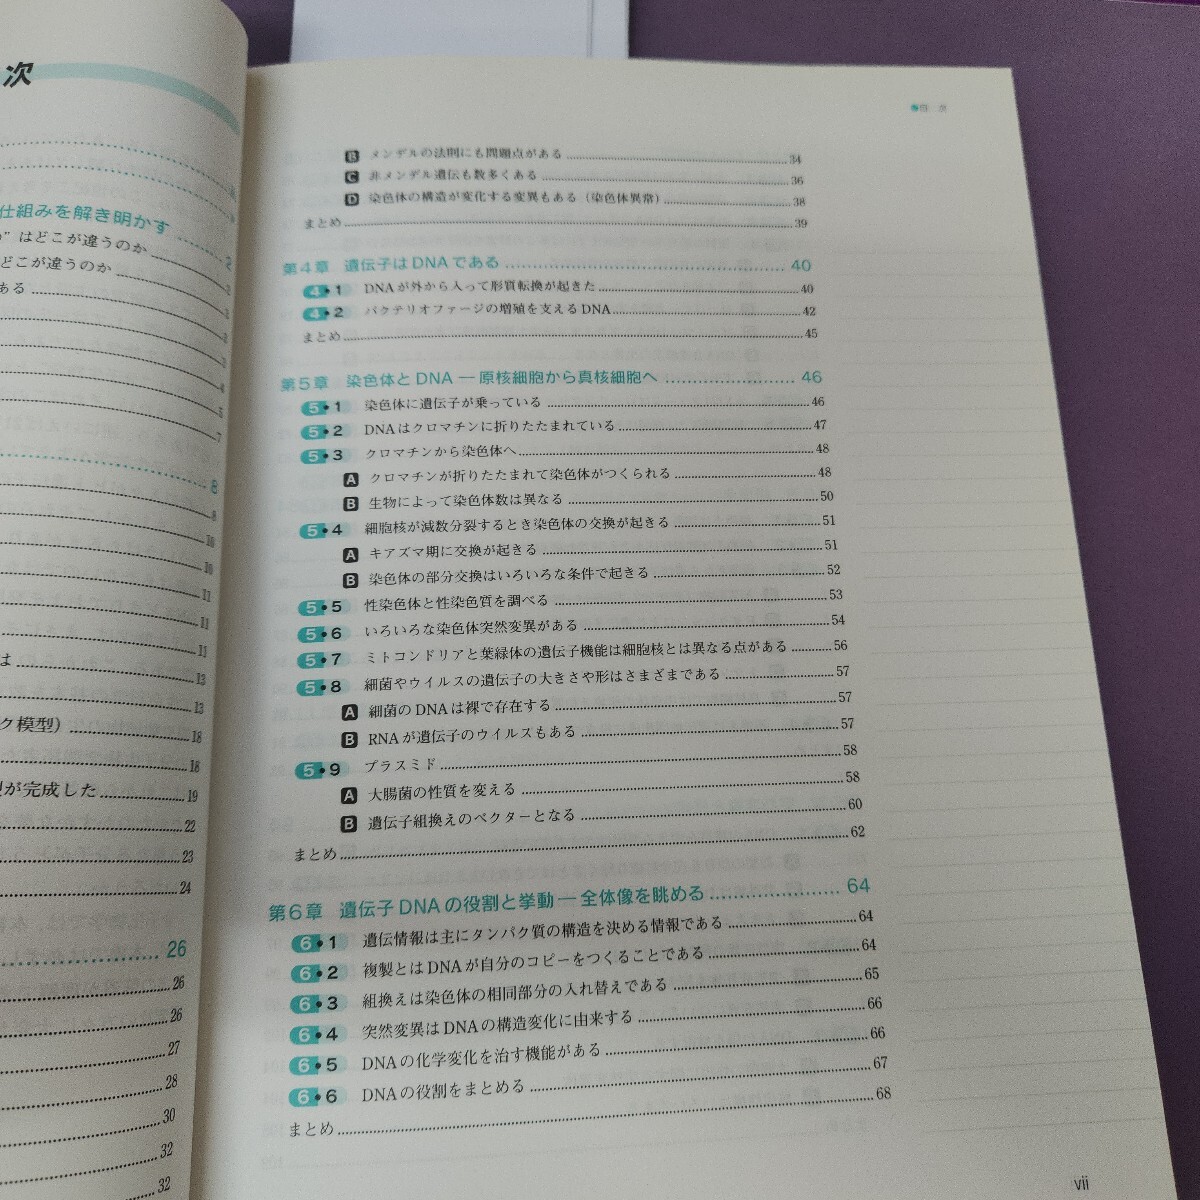 次
仕組みを解き明かす 2
はどこが違うのか
どこが違うのか
ある
7
8
8
10
10
11
11
11
は 13
13
ク模型） 18
18
が完成した 19
22
23
24
26
26
26
27
28
30
32
32
目 次
B メンデルの法則にも問題点がある 34
C 非メンデル遺伝も数多くある 36
D 染色体の構造が変化する変異もある（染色体異常） 38
まとめ 39
第4章 遺伝子はDNAである 40
4・1 DNAが外から入って形質転換が起きた 40
4・2 バクテリオファージの増殖を支えるDNA 42
まとめ 45
第5章 染色体とDNA — 原核細胞から真核細胞へ 46
5・1 染色体に遺伝子が乗っている 46
5・2 DNAはクロマチンに折りたたまれている 47
5・3 クロマチンから染色体へ 48
A クロマチンが折りたたまれて染色体がつくられる 48
B 生物によって染色体数は異なる 50
5・4 細胞核が減数分裂するとき染色体の交換が起きる 51
A キアズマ期に交換が起きる 51
B 染色体の部分交換はいろいろな条件で起きる 52
5・5 性染色体と性染色質を調べる 53
5・6 いろいろな染色体突然変異がある 54
5・7 ミトコンドリアと葉緑体の遺伝子機能は細胞核とは異なる点がある 56
5・8 細菌やウイルスの遺伝子の大きさや形はさまざまである 57
A 細菌のDNAは裸で存在する 57
B RNAが遺伝子のウイルスもある 57
5・9 プラスミド 58
A 大腸菌の性質を変える 58
B 遺伝子組換えのベクターとなる 60
まとめ 62
第6章 遺伝子DNAの役割と挙動 — 全体像を眺める 64
6・1 遺伝情報は主にタンパク質の構造を決める情報である 64
6・2 複製とはDNAが自分のコピーをつくることである 64
6・3 組換えは染色体の相同部分の入れ替えである 65
6・4 突然変異はDNAの構造変化に由来する 66
6・5 DNAの化学変化を治す機能がある 66
6・6 DNAの役割をまとめる 67
まとめ 68
vii